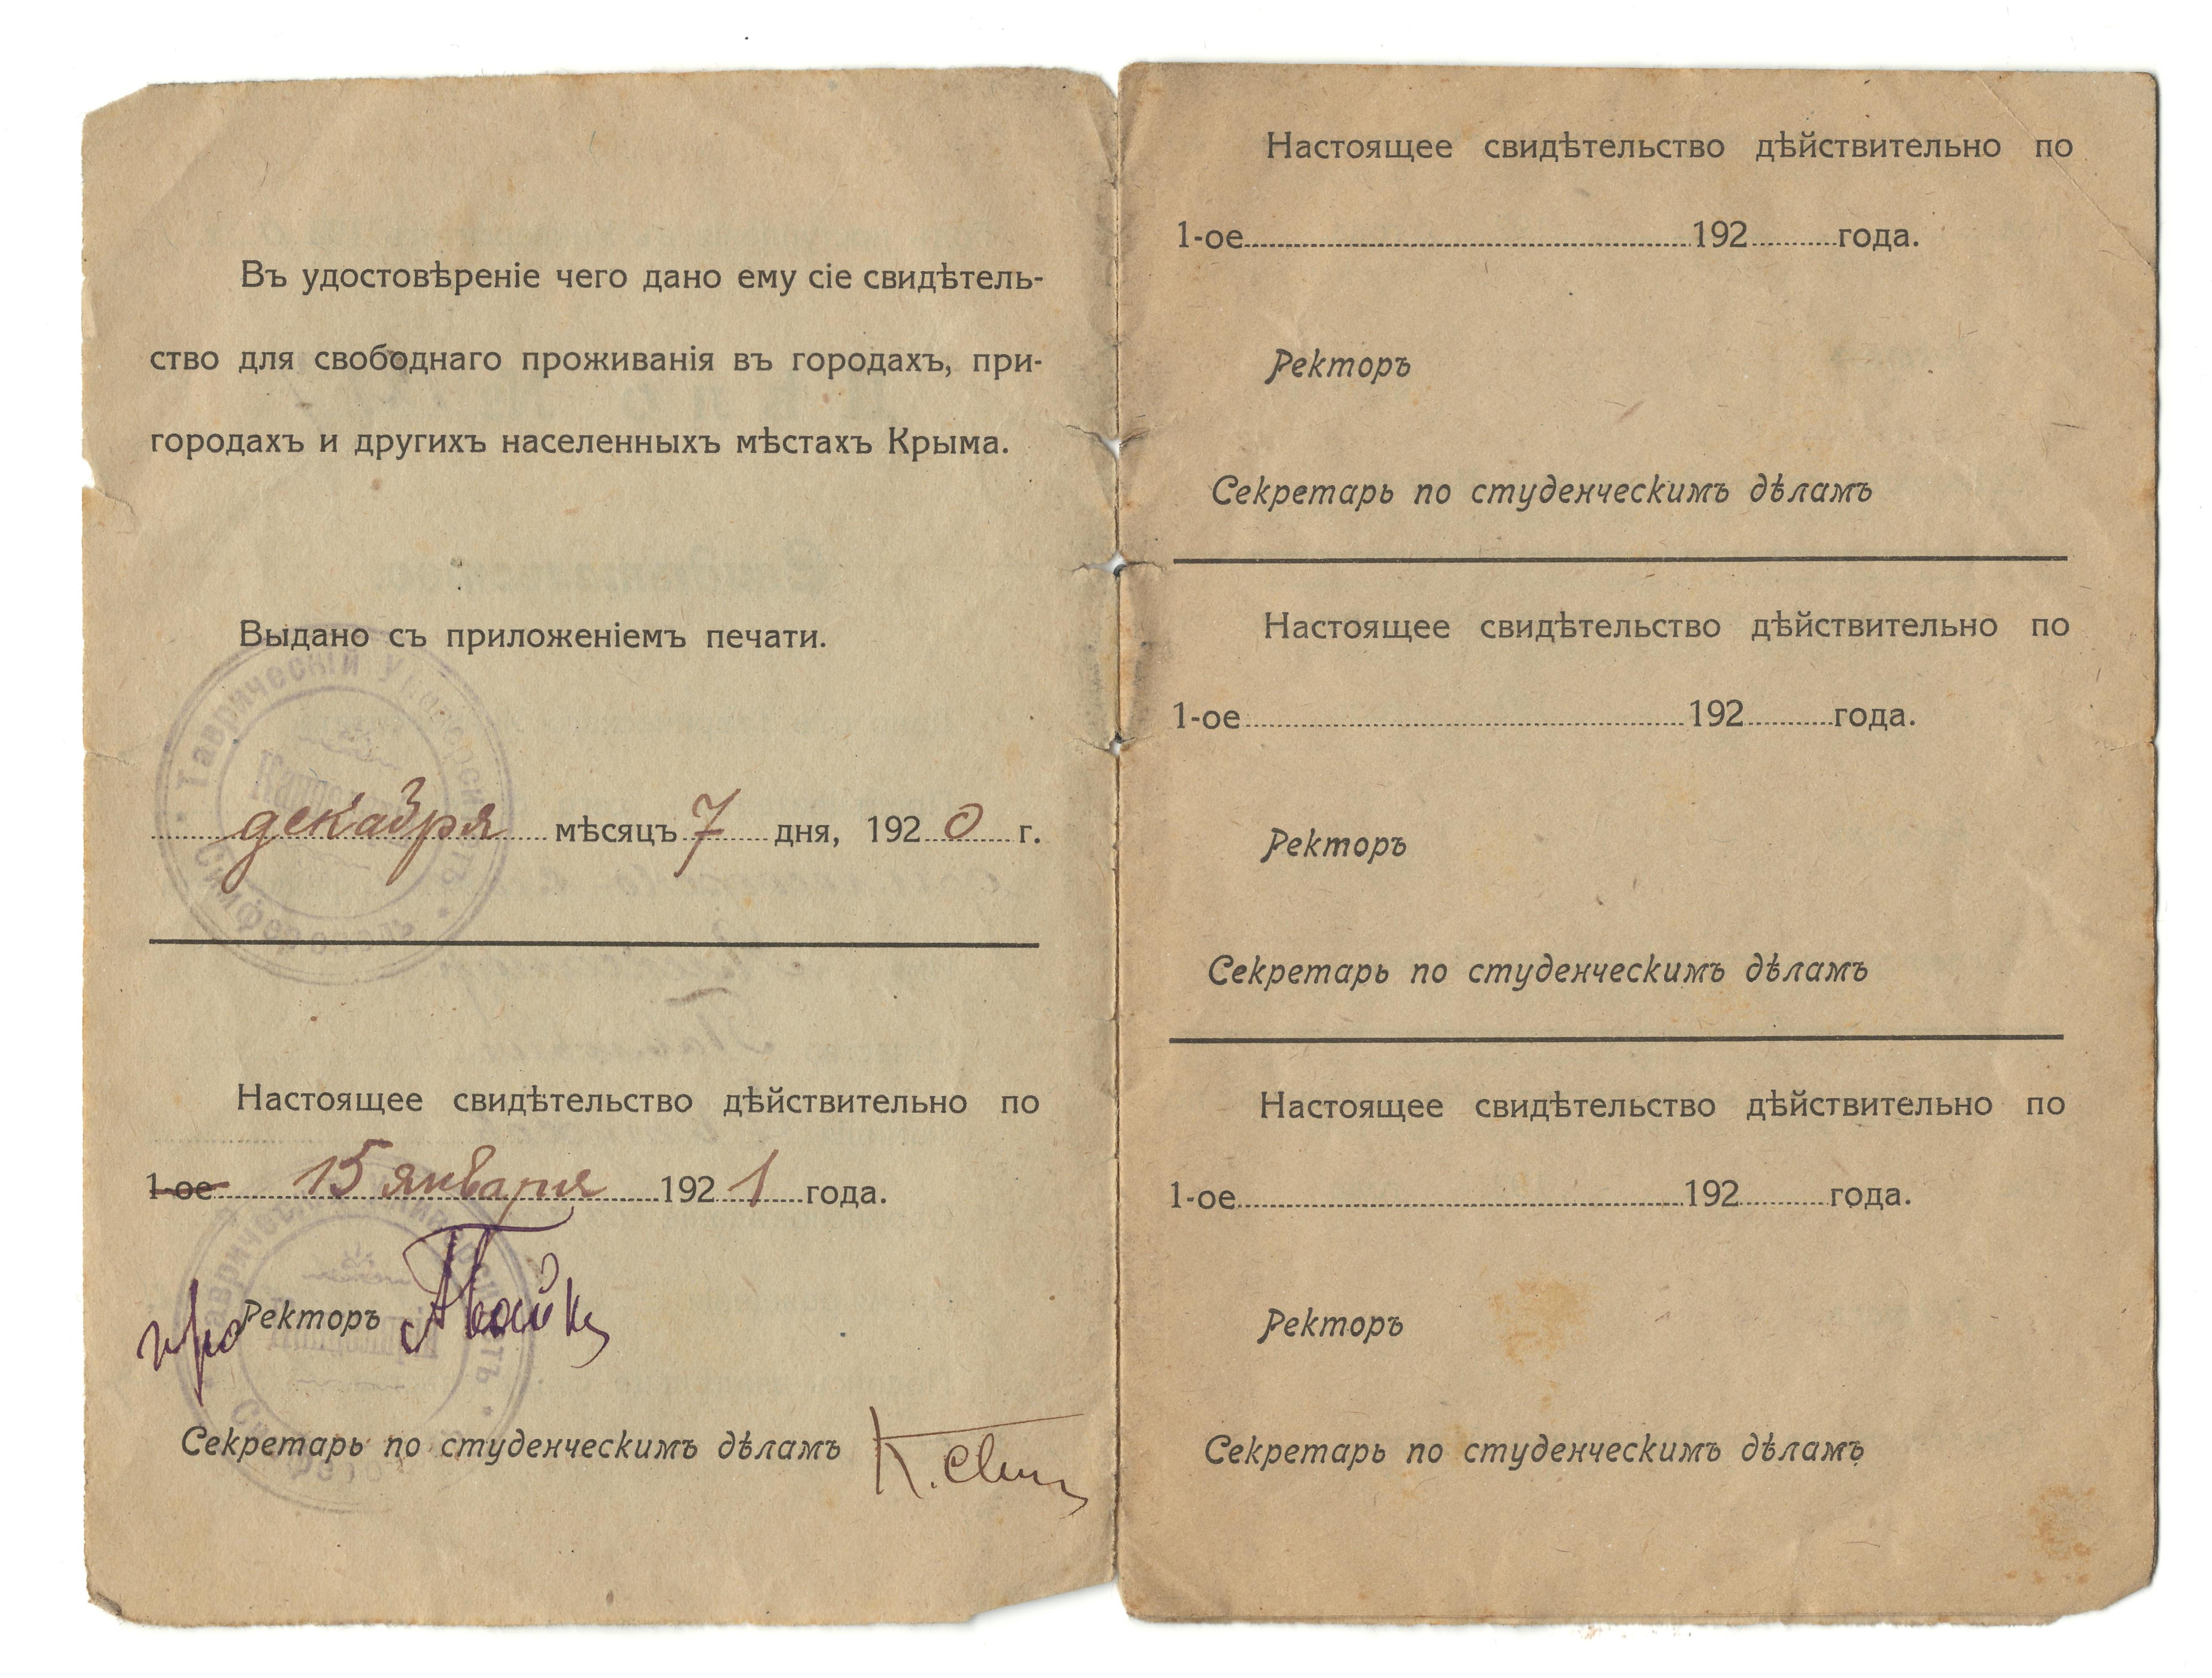 Въ удостовѣреніе чего дано ему сіе свидѣтель-
ство для свободнаго проживанія въ городахъ, при-
городахъ и другихъ населенныхъ мѣстахъ Крыма.
Выдано съ приложеніемъ печати.
Таврическій Университетъ
Симферополь
декабря мѣсяцъ 7 дня, 1920 г.
Настоящее свидѣтельство дѣйствительно по
1-ое 15 января 1921 года.
про Ректоръ
Секретарь по студенческимъ дѣламъ К.
Настоящее свидѣтельство дѣйствительно по
1-ое 192 года.
Ректоръ
Секретарь по студенческимъ дѣламъ
Настоящее свидѣтельство дѣйствительно по
1-ое 192 года.
Ректоръ
Секретарь по студенческимъ дѣламъ
Настоящее свидѣтельство дѣйствительно по
1-ое 192 года.
Ректоръ
Секретарь по студенческимъ дѣламъ